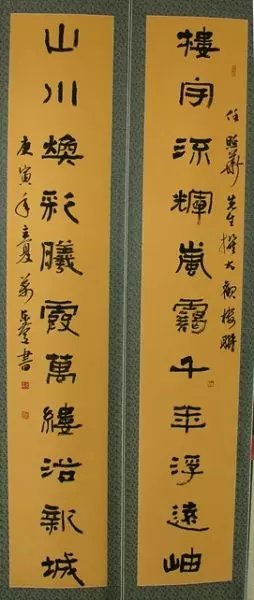 任
先生撰大觀樓聯
樓宇流輝嵐靄千年浮遠岫
山川煥彩曦霞萬縷浴新城
庚寅年立夏
書